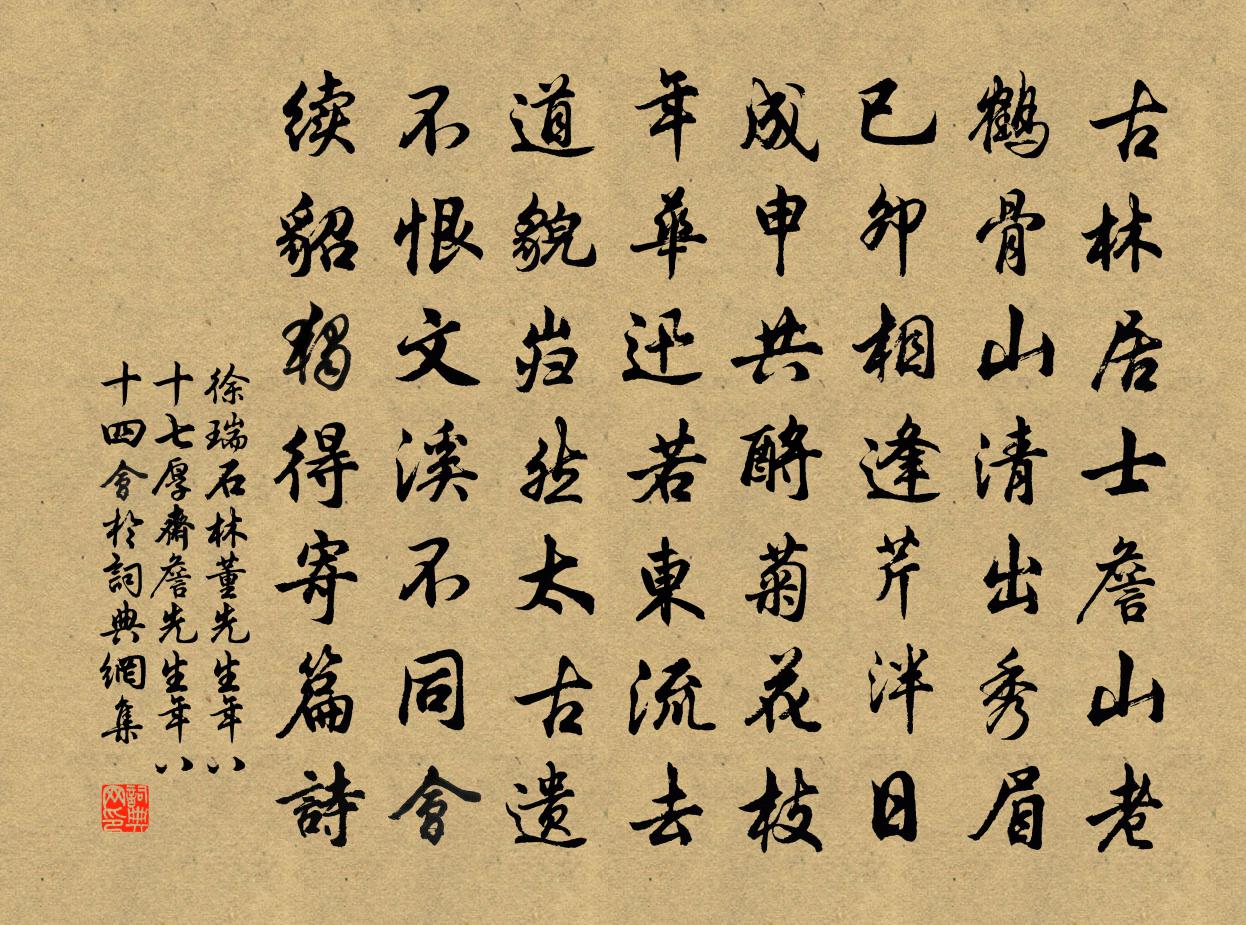 古林居士詹山老
鶴骨山清出秀眉
已卯相逢芹泮日
成申共酧菊花枝
年華迅若東流去
道貌岿然太古遗
不恨文溪不同會
续貂獨得寄篇詩
徐瑞石林董先生年八
十七厚齋詹先生年八
十四會於詞典網集
詞典网印